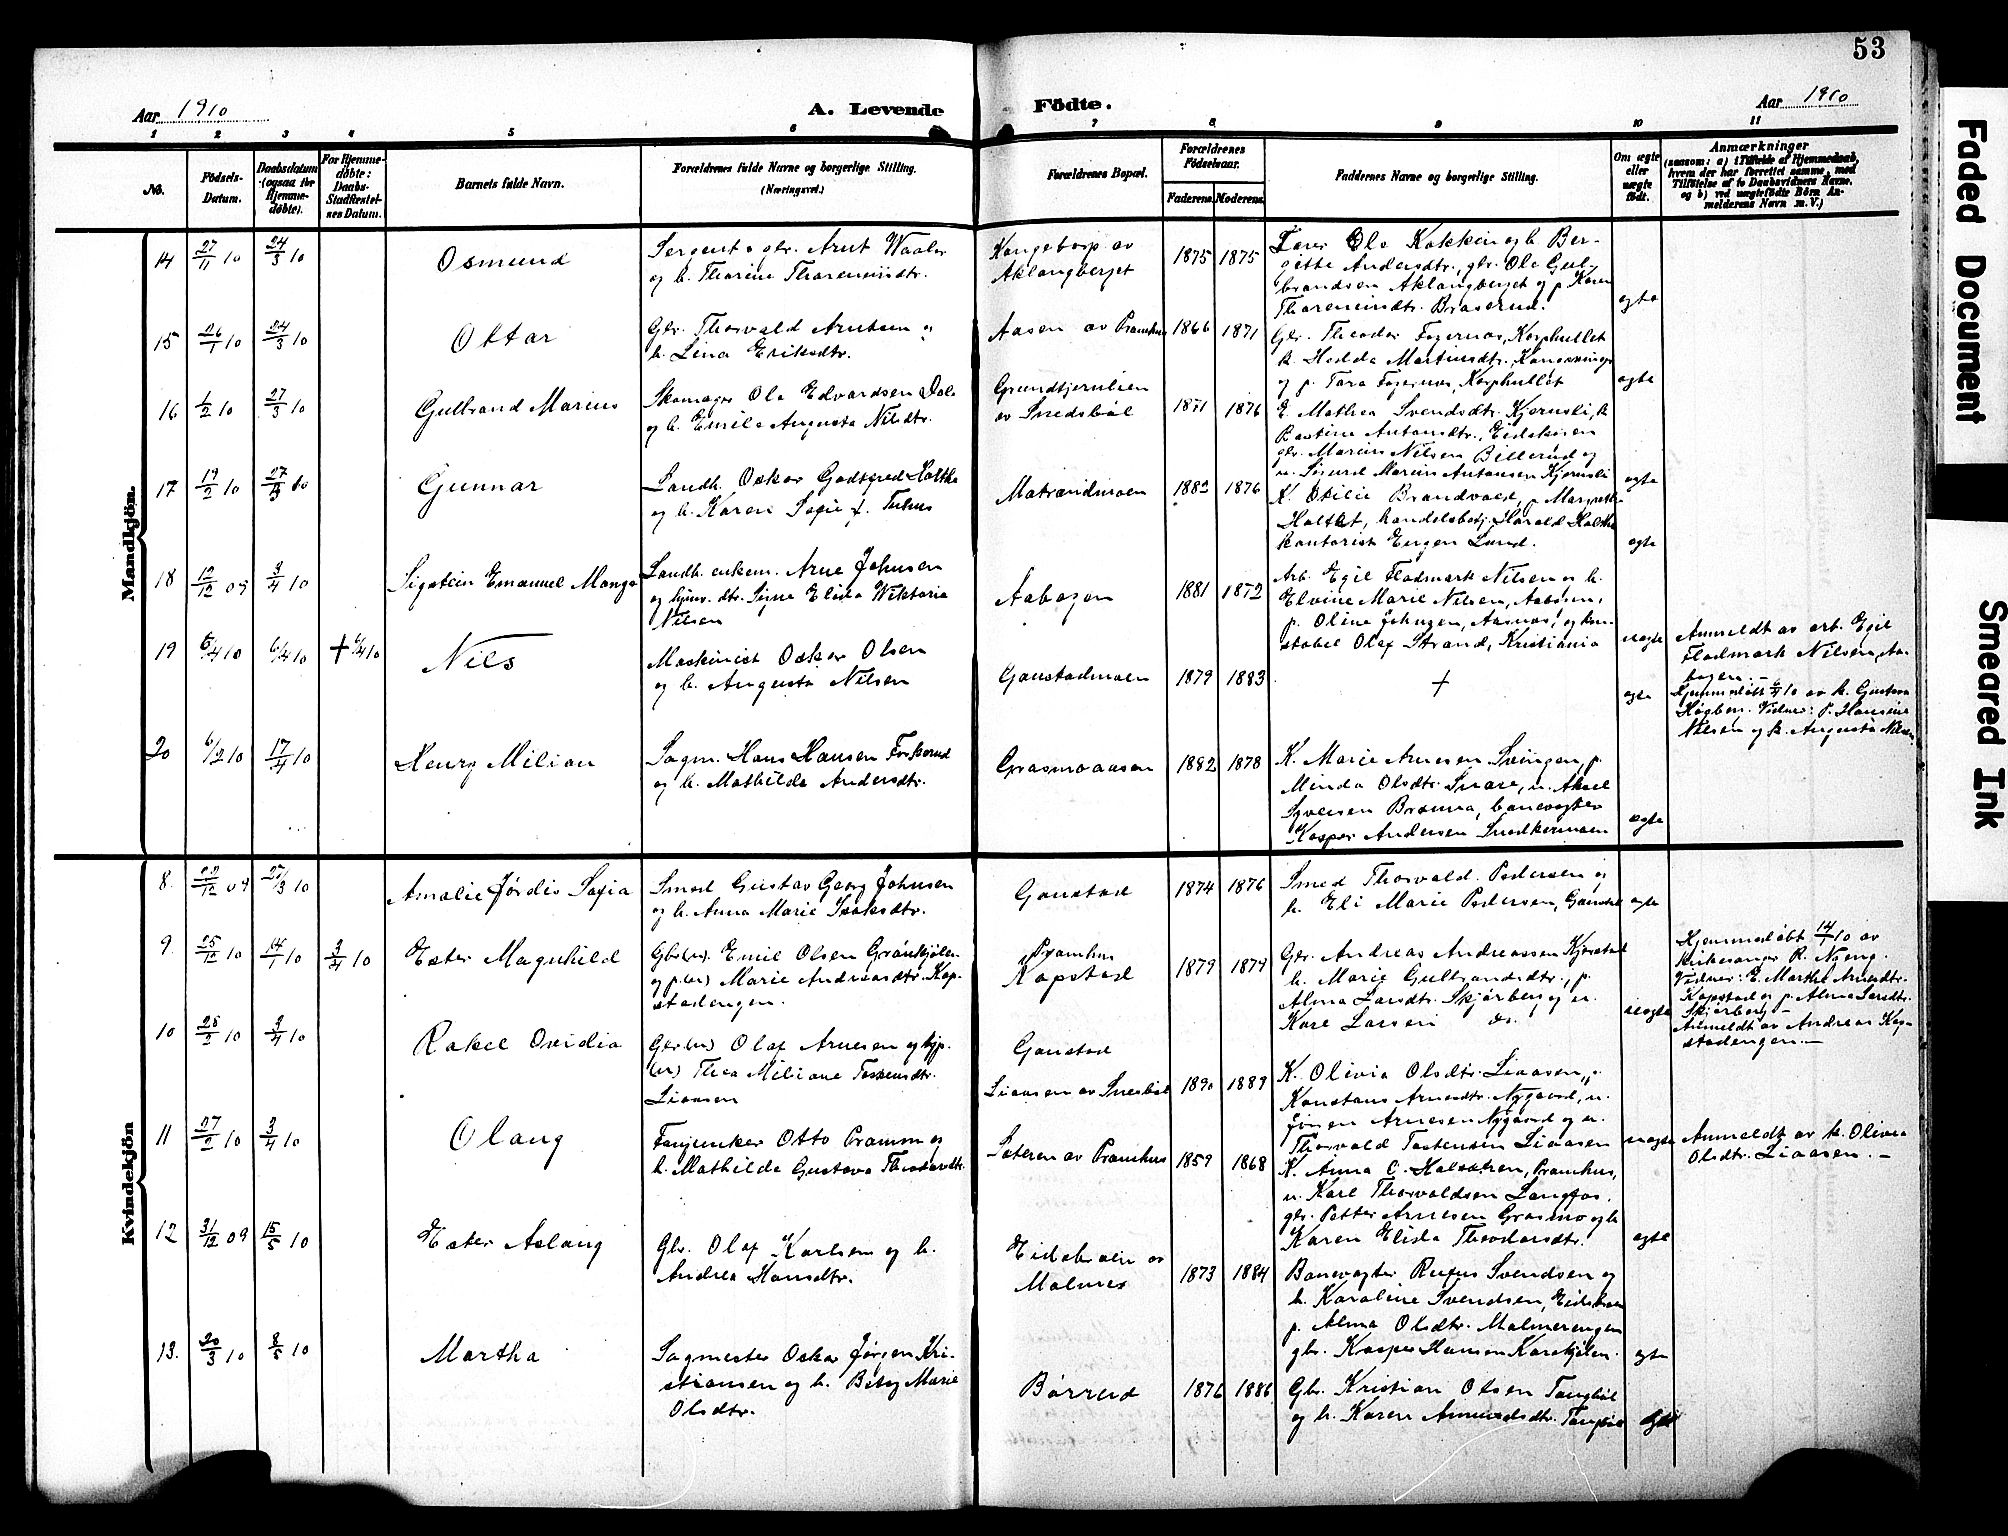 53
Aar 1910
A. Levende
Födte.
Aar 1910
1 2 3 4 5 6 7 8 9 10 11
No.
Födsels-
Datum.
Daabsdatum
(ogsaa for
Hjemme-
döbte).
For Hjemme-
döbte:
Daabs-
Stadfæstel-
ses Datum.
Barnets fulde Navn.
Forældrenes fulde Navne og borgerlige Stilling.
(Næringsvei.)
Forældrenes Bopæl.
Forældrenes
Födselsaar.
Faderens. Moderens.
Faddernes Navne og borgerlige Stilling.
Om ægte
eller
uægte
født.
Anmærkninger
(saasom: a) i Tilfælde af Hjemmedaab,
hvem der har forrettet samme, med
Tilföielse af to Daabsvidners Navne,
og b) ved uægtefödte Börn An-
melderens Navn m. V.)
Mandkjön.
14 27/11 10 24/3 10 Osmund
Sergent o gbr. Arnt Waaler
og h. Thorine Thoreneindtr.
Kongetorp av
Aklangberget
1875 1875
Ole Kokkin og h. Ber-
gitte Andersdtr., gbr. Ole Gul-
brandsen Aklangberget og p. Karen
Thoreneindtr. Braserud.
ægte
15 26/1 10 24/3 10 Ottar
Gbr. Thorvald Arntsen o
h. Lina Eriksdtr.
Aasen av Pramhus
1866 1871
Gbr. Theodor Fozernæs, Korphullet
k. Hedda Martinsdtr.,
og p. Tara Fozernæs, Korphullet
ægte
16 1/2 10 27/3 10 Gulbrand Marius
Skomager Ole Edvardsen Dal
og h. Emilie Augusta Nilsdtr.
Grundtjernlien
av Snedsböl
1871 1876
E. Mathea Svendsdtr. Kjernsli, k
Antonsdtr., Eidskogen
gbr. Marius Nilsen Billerud og
u. Sigurd Marius Antonsen Kjernsli
ægte
17 19/2 10 27/3 10 Gunnar
Landh. Oskar Godtfred Holthe
og h. Karen Sofie f. Tuhus
Matrandmoen
1882 1876
K. Otilie Brandvold, p. Margrethe
Holthet, handelsbetj. Harald Holthe
kontorist Eugen Lund.
ægte
18 12/12 09 3/4 10 Sigstein Emanuel Mango
Landh. enkem. Arne Johnsen
og hjmv. dtr. Signe Elida Wiktoria
Nilsen
Aabogen
1881 1872
Arb. Egil Fladmark Nilsen og h.
Elvine Marie Nilsen, Aabogen,
p. Oline Johnsen, Aasnæs, og kon-
stabel Olaf Strand, Kristiania
uægte
Anmeldt av arb. Egil
Fladmark Nilsen, Aa-
bogen. -
19 5/4 10 6/4 10 + 6/4 10 Nils
Maskinist Oskar Olsen
og h. Augusta Nilsen
Gaustadmoen
1879 1883
+
ægte
Hjemmedöbt 6/4 10 av k. Gustava
Högben. Vidner: p. Hansine
Nilsen og k. Augusta Nilsen
20 6/2 10 17/4 10 Henry Milian
Sagm. Hans Hansen Forkerud
og h. Mathilde Andersdtr.
Grasmoaasen
1882 1878
K. Marie Arnesen Svingen, p.
Minda Olsdtr. Snare, u. Aksel
Syversen Brænna, banevogter
Kasper Andersen Snedkermoen
ægte
Kvindekjön
8. 22/12 09 27/3 10 Amalie Jördis Sofia
Smed Gustav Georg Johnsen
og h. Anna Marie Isaksdtr.
Gaustad
1874 1876
Smed Thorvald Pedersen og
h. Eli Marie Pedersen, Gaustad
ægte
9. 25/12 10 14/1 10 3/4 10 Ester Magnhild
Gbr (u.) Emil Olsen Grönkjölen
og p. (u) Marie Andreasdtr. Kop-
stadengen.
Pramhus
Kopstad
1879 1879
Gbr. Andreas Andreassen Kjerstad
h. Marie Gulbrandsdtr., p.
Alma Larsdtr. Skjörberg og u.
Kare Larsen ds.
uægte
Hjemmedöbt 14/1 10 av
kirkesanger R. Nyeng.
Vidner: E. Marthe Arnesdtr.
Kopstad og p. Alma Larsdtr.
Skjörberg -
Anmeldt av Andreas Kop-
stadengen. -
10 25/2 10 3/4 10 Rakel Ovidia
Gbr (u.) Olaf Arnesen og hjp.
(u) Thea Miliane Torstensdtr.
Liaasen
Gaustad
Liaasen av Snesböl
1890 1889
K. Olivia Olsdtr. Liaasen,
Konstans Arnesdtr. Nygaard, u.
Jörgen Arnesen Nygaard og u.
Thorvald Torstensen Liaasen
uægte
Anmeldt av k. Olivia
Olsdtr. Liaasen. -
11 27/2 10 3/4 10 Olaug
Fanejunker Otto Pramm og
h. Mathilde Gustava Theodorsdtr.
Sæteren av Pramhus
1859 1868
K. Anna C. Halvorsen, Pramhus,
u. Karl Thorvaldsen Langfos,
gbr. Petter Arnesen Grasmo og h.
Karen Elida Theodorsdtr.
ægte
12 31/12 09 15/5 10 Ester Aslaug
Gbr. Olaf Karlsen og h.
Andrea Hansdtr.
Eidsbraaten av
Malmer
1873 1884
Banevogter Rufus Svendsen og
h. Karoline Svendsen,
p. Alma Olsdtr. Malmerengen
gbr. Kasper Hansen Karskjölen.
ægte
13. 20/3 10 8/5 10 Martha
Sagmester Oskar Jörgen Kri-
stiansen og h. Betsy Marie
Olsdtr.
Börrud
1876 1886
Gbr. Kristian Olsen Tangböl
og h. Karen Amundsdtr. Tangböl
ægte
Faded Document
Smeared Ink